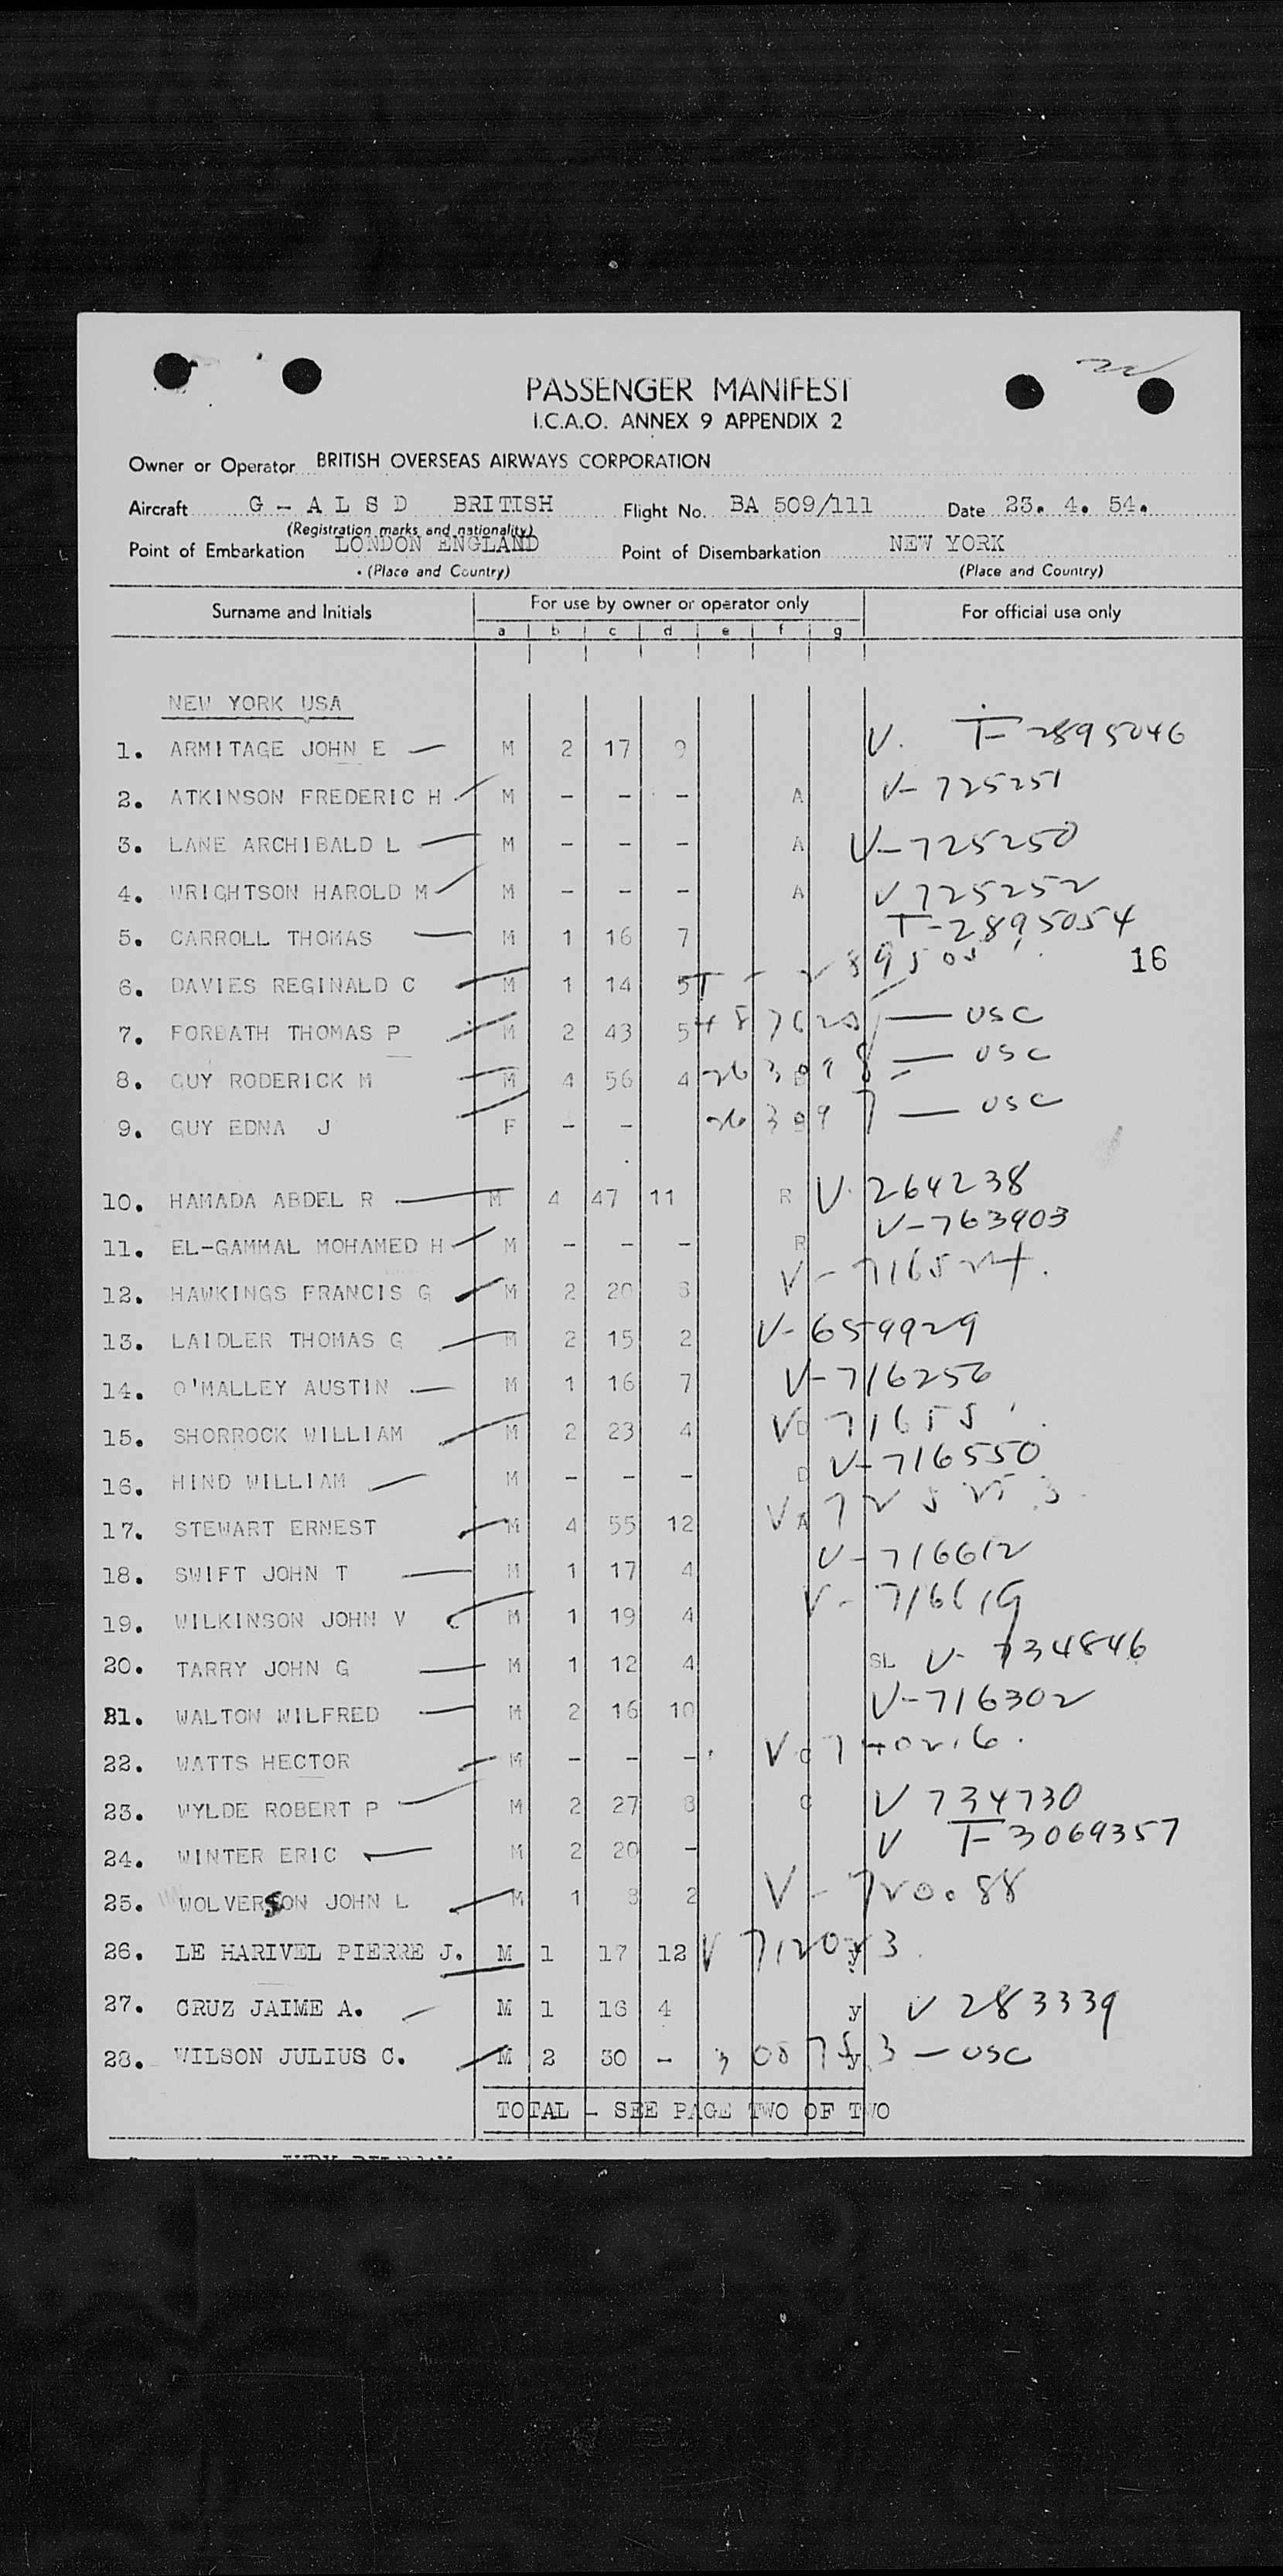 PASSENGER MANIFEST
I.C.A.O. ANNEX 9 APPENDIX 2
Owner or Operator BRITISH OVERSEAS AIRWAYS CORPORATION
Aircraft G - A L S D BRITISH Flight No. BA 509/111 Date 23. 4. 54.
(Registration marks and nationality)
Point of Embarkation LONDON ENGLAND Point of Disembarkation NEW YORK
(Place and Country) (Place and Country)
Surname and Initials For use by owner or operator only For official use only
a b c d e f g
NEW YORK USA
1. ARMITAGE JOHN E M 2 17 9 V. T-2895046
2. ATKINSON FREDERIC H M - - - A V-725251
3. LANE ARCHIBALD L M - - - A V-725250
4. WRIGHTSON HAROLD M M - - - A V 725252
5. CARROLL THOMAS M 1 16 7 T-2895054
16
6. DAVIES REGINALD C M 1 14 5 T-
7. FORBATH THOMAS P M 2 43 5 — USC
8. GUY RODERICK M M 4 56 4 263098 — USC
9. GUY EDNA J F - - 263097 — USC
10. HAMADA ABDEL R M 4 47 11 R V. 264238
11. EL-GAMMAL MOHAMED H M - - - R V-763903
12. HAWKINGS FRANCIS G M 2 20 8 V-716524.
13. LAIDLER THOMAS G M 2 15 2 V-659929
14. O'MALLEY AUSTIN M 1 16 7 V-716256
15. SHORROCK WILLIAM M 2 23 4 D V
16. HIND WILLIAM M - - - D V-716550
17. STEWART ERNEST M 4 55 12 A V 725253
18. SWIFT JOHN T M 1 17 4 V-716612
19. WILKINSON JOHN V M 1 19 4 V-716619
20. TARRY JOHN G M 1 12 4 SL V-734846
21. WALTON WILFRED M 2 16 10 V-716302
22. WATTS HECTOR M - - - C V
23. WYLDE ROBERT P M 2 27 8 C V 734730
24. WINTER ERIC M 2 20 - V T-3069357
25. WOLVERSON JOHN L M 1 8 2 V-720088
26. LE HARIVEL PIERRE J. M 1 17 12 y V 712023
27. CRUZ JAIME A. M 1 16 4 y V 283339
28. WILSON JULIUS C. M 2 30 - y — USC
TOTAL - SEE PAGE TWO OF TWO